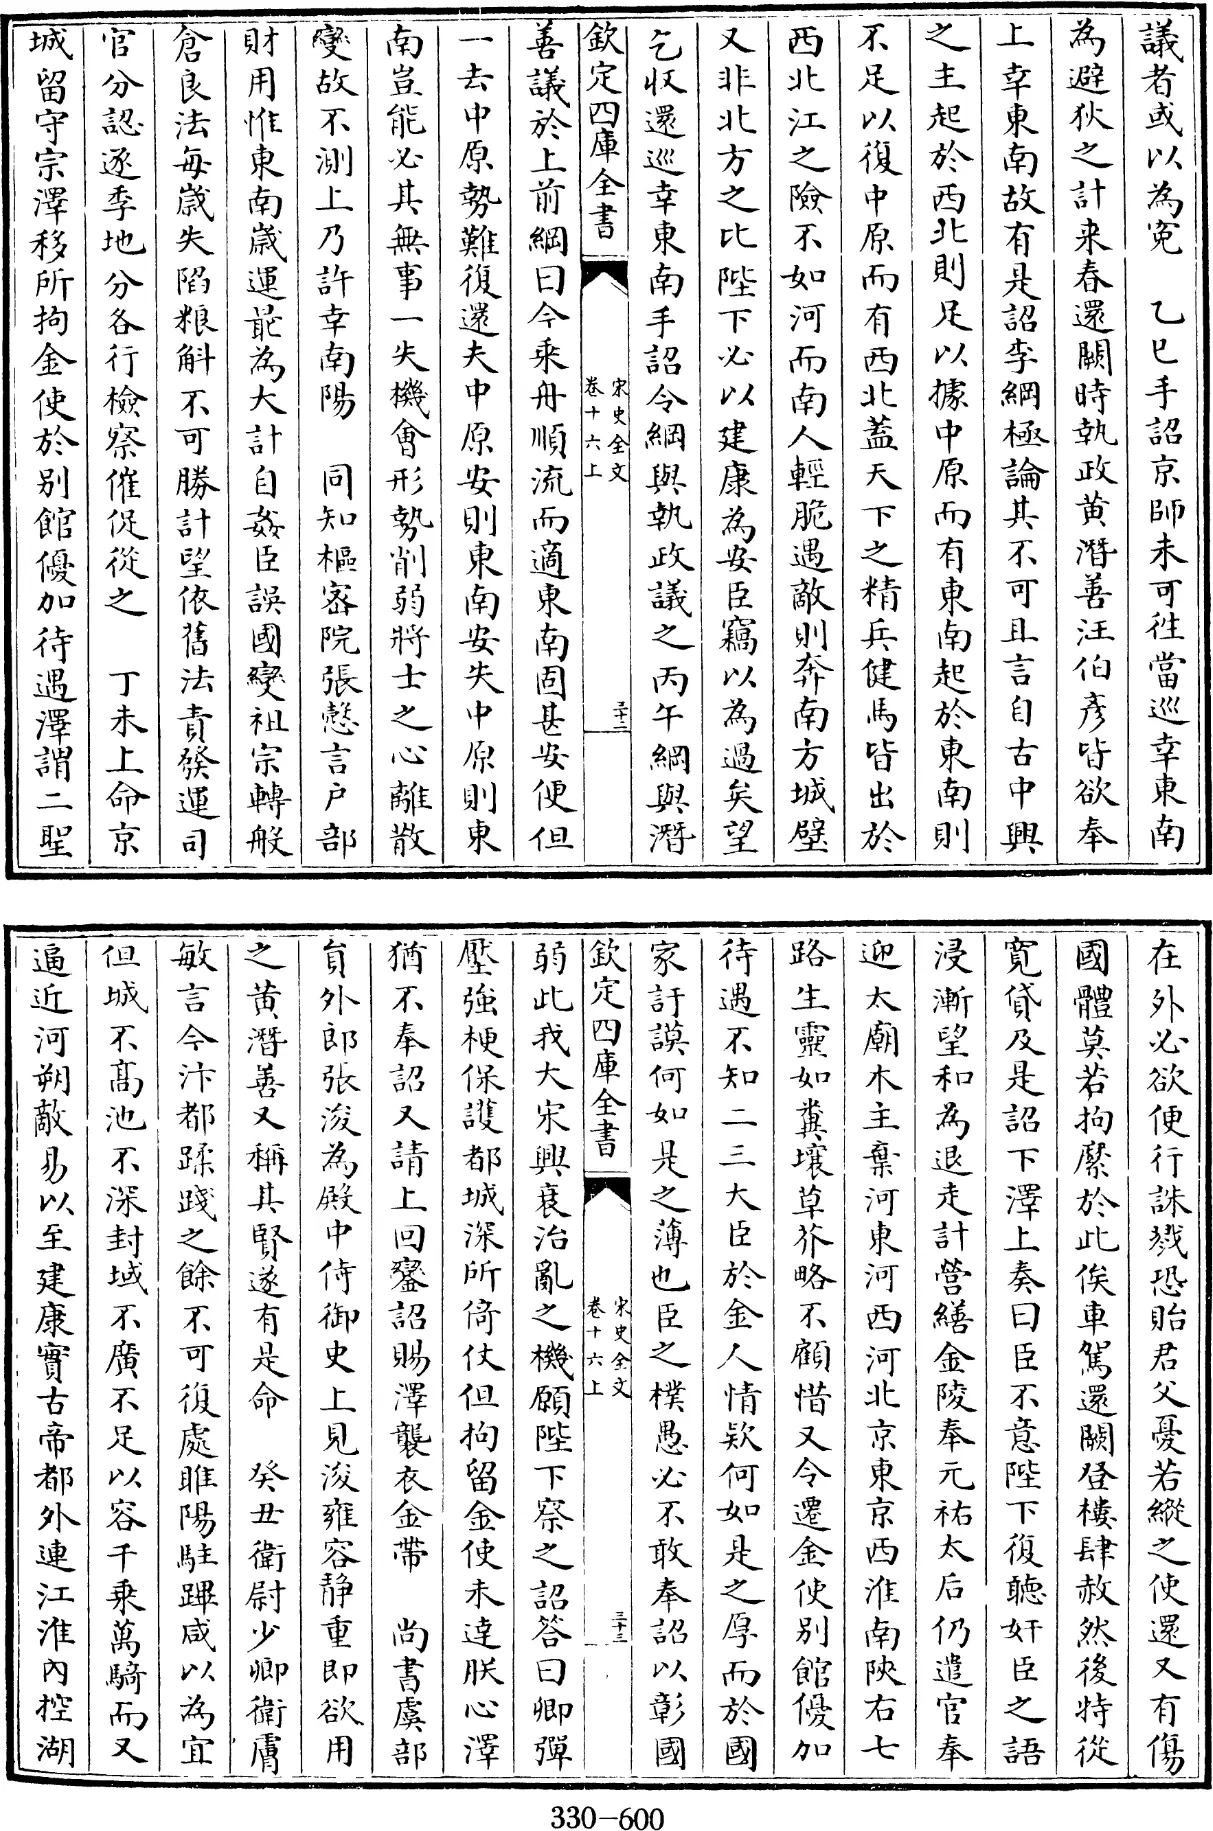 議者或以為寃　乙巳手詔京師未可往當巡幸東南
為避狄之計来春還闕時執政黄潛善汪伯彥皆欲奉
上幸東南故有是詔李綱極論其不可且言自古中興
之主起於西北則足以據中原而有東南起於東南則
不足以復中原而有西北蓋天下之精兵健馬皆出於
西北江之險不如河而南人輕脆遇敵則奔南方城壁
又非北方之比陛下必以建康為安臣竊以為過矣望
乞収還巡幸東南手詔令綱與執政議之丙午綱與潛
欽定四庫全書
宋史全文
卷十六上
三十二
善議於上前綱曰今乘舟順流而適東南固甚安便但
一去中原勢難復還夫中原安則東南安失中原則東
南豈能必其無事一失機會形勢削弱將士之心離散
變故不測上乃許幸南陽　同知樞密院張慤言户部
財用惟東南嵗運最為大計自姦臣誤國變祖宗轉般
倉良法每嵗失陷粮斛不可勝計望依舊法責發運司
官分認逐季地分各行檢察催促從之　丁未上命京
城留守宗澤移所拘金使於别館優加待遇澤謂二聖
在外必欲便行誅戮恐貽君父憂若縱之使還又有傷
國體莫若拘縻於此俟車駕還闕登樓肆赦然後特從
寛貸及是詔下澤上奏曰臣不意陛下復聽奸臣之語
浸漸望和為退走計營繕金陵奉元祐太后仍遣官奉
迎太廟木主棄河東河西河北京東京西淮南陜右七
路生靈如糞壤草芥略不顧惜又令遷金使别館優加
待遇不知二三大臣於金人情欵何如是之厚而於國
家訏謨何如是之薄也臣之樸愚必不敢奉詔以彰國
欽定四庫全書
宋史全文
卷十六上
三十三
弱此我大宋興衰治亂之機願陛下察之詔答曰卿彈
壓強梗保護都城深所倚仗但拘留金使未達朕心澤
猶不奉詔又請上回鑾詔賜澤襲衣金帶　尚書虞部
員外郎張浚為殿中侍御史上見浚雍容静重即欲用
之黄潛善又稱其賢遂有是命　癸丑衛尉少卿衛膚
敏言今汴都蹂踐之餘不可復處睢陽駐蹕咸以為宜
但城不髙池不深封域不廣不足以容千乘萬騎而又
逼近河朔敵易以至建康實古帝都外連江淮內控湖
330-600